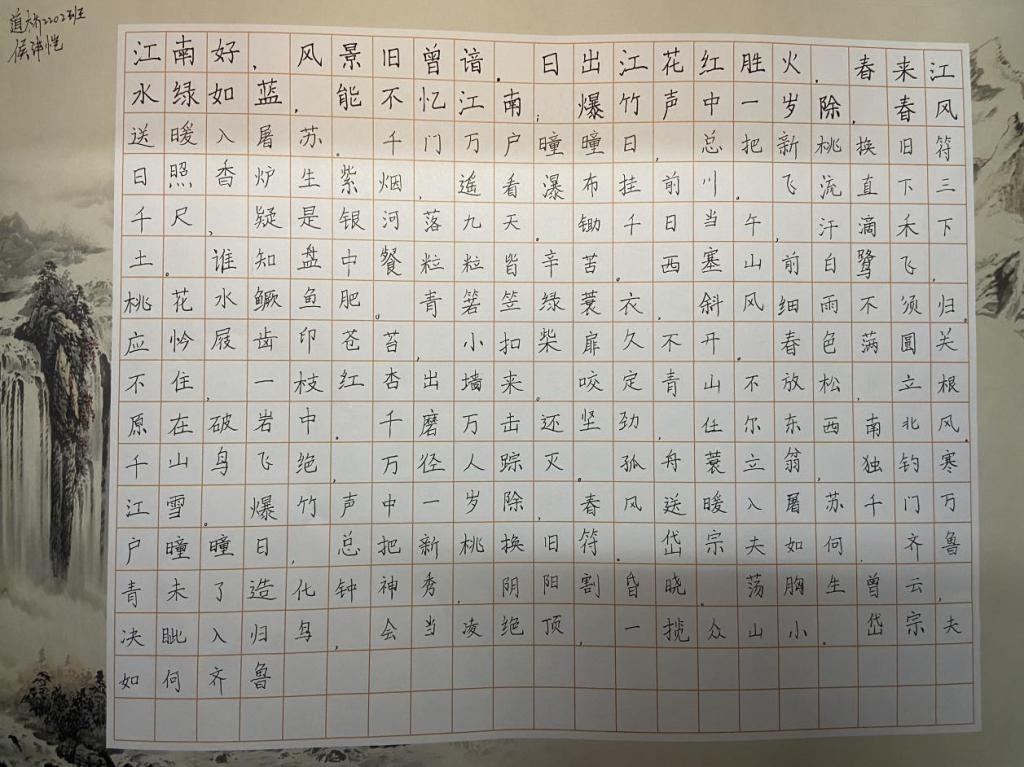 道桥2202班
江南好,风景旧曾谙.日出江花红胜火,春来江
水绿如蓝,能不忆江南;爆竹声中一岁除,春风
送暖入屠苏.千门万户曈曈日,总把新桃换旧符
日照香炉生紫烟,遥看瀑布挂前川.飞流直下三
千尺,疑是银河落九天。锄千日当午,汗滴禾下
土。谁知盘中餐粒粒皆辛苦。西塞山前白鹭飞,
桃花水鳜鱼肥。青箬笠绿蓑衣,斜风细雨不须归.
应怜屐齿印苍苔,小扣柴扉久不开.春色满圆关
不住,一枝红杏出墙来。咬定青山不放松,立根
原在破岩中.千磨万击还坚劲,任尔东西南北风.
千山鸟飞绝,万径人踪灭。孤舟蓑立翁,独钓寒
江雪。爆竹声中一岁除,春风送暖入屠苏千门万
户曈曈日,总把新桃换旧符.岱宗夫如何.齐鲁
青未了造化钟神秀,阴阳割昏晓.荡胸生曾云,
决眦入归鸟,会当凌绝顶,一揽众山小.岱宗夫
如何齐鲁